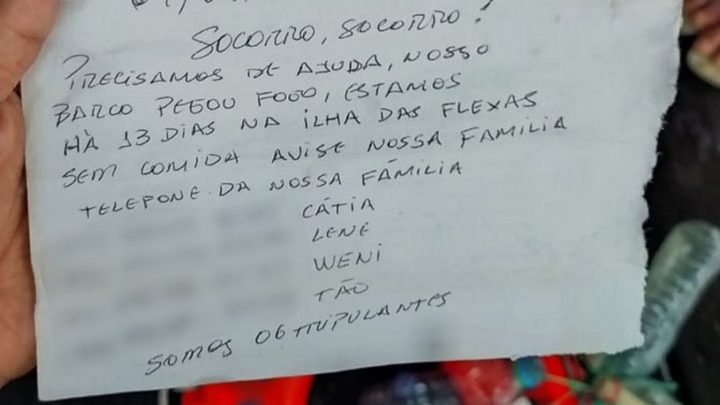 SOCORRO, SOCORRO!
PRECISAMOS DE AJUDA, NOSSO
BARCO PEGOU FOGO, ESTAMOS
HÀ 13 DIAS NA ILHA DAS FLEXAS
SEM COMIDA AVISE NOSSA FAMILIA
TELEFONE DA NOSSA FÁMILIA
CÁTIA
LENE
WENI
TÃO
SOMOS 06 TRIPULANTES